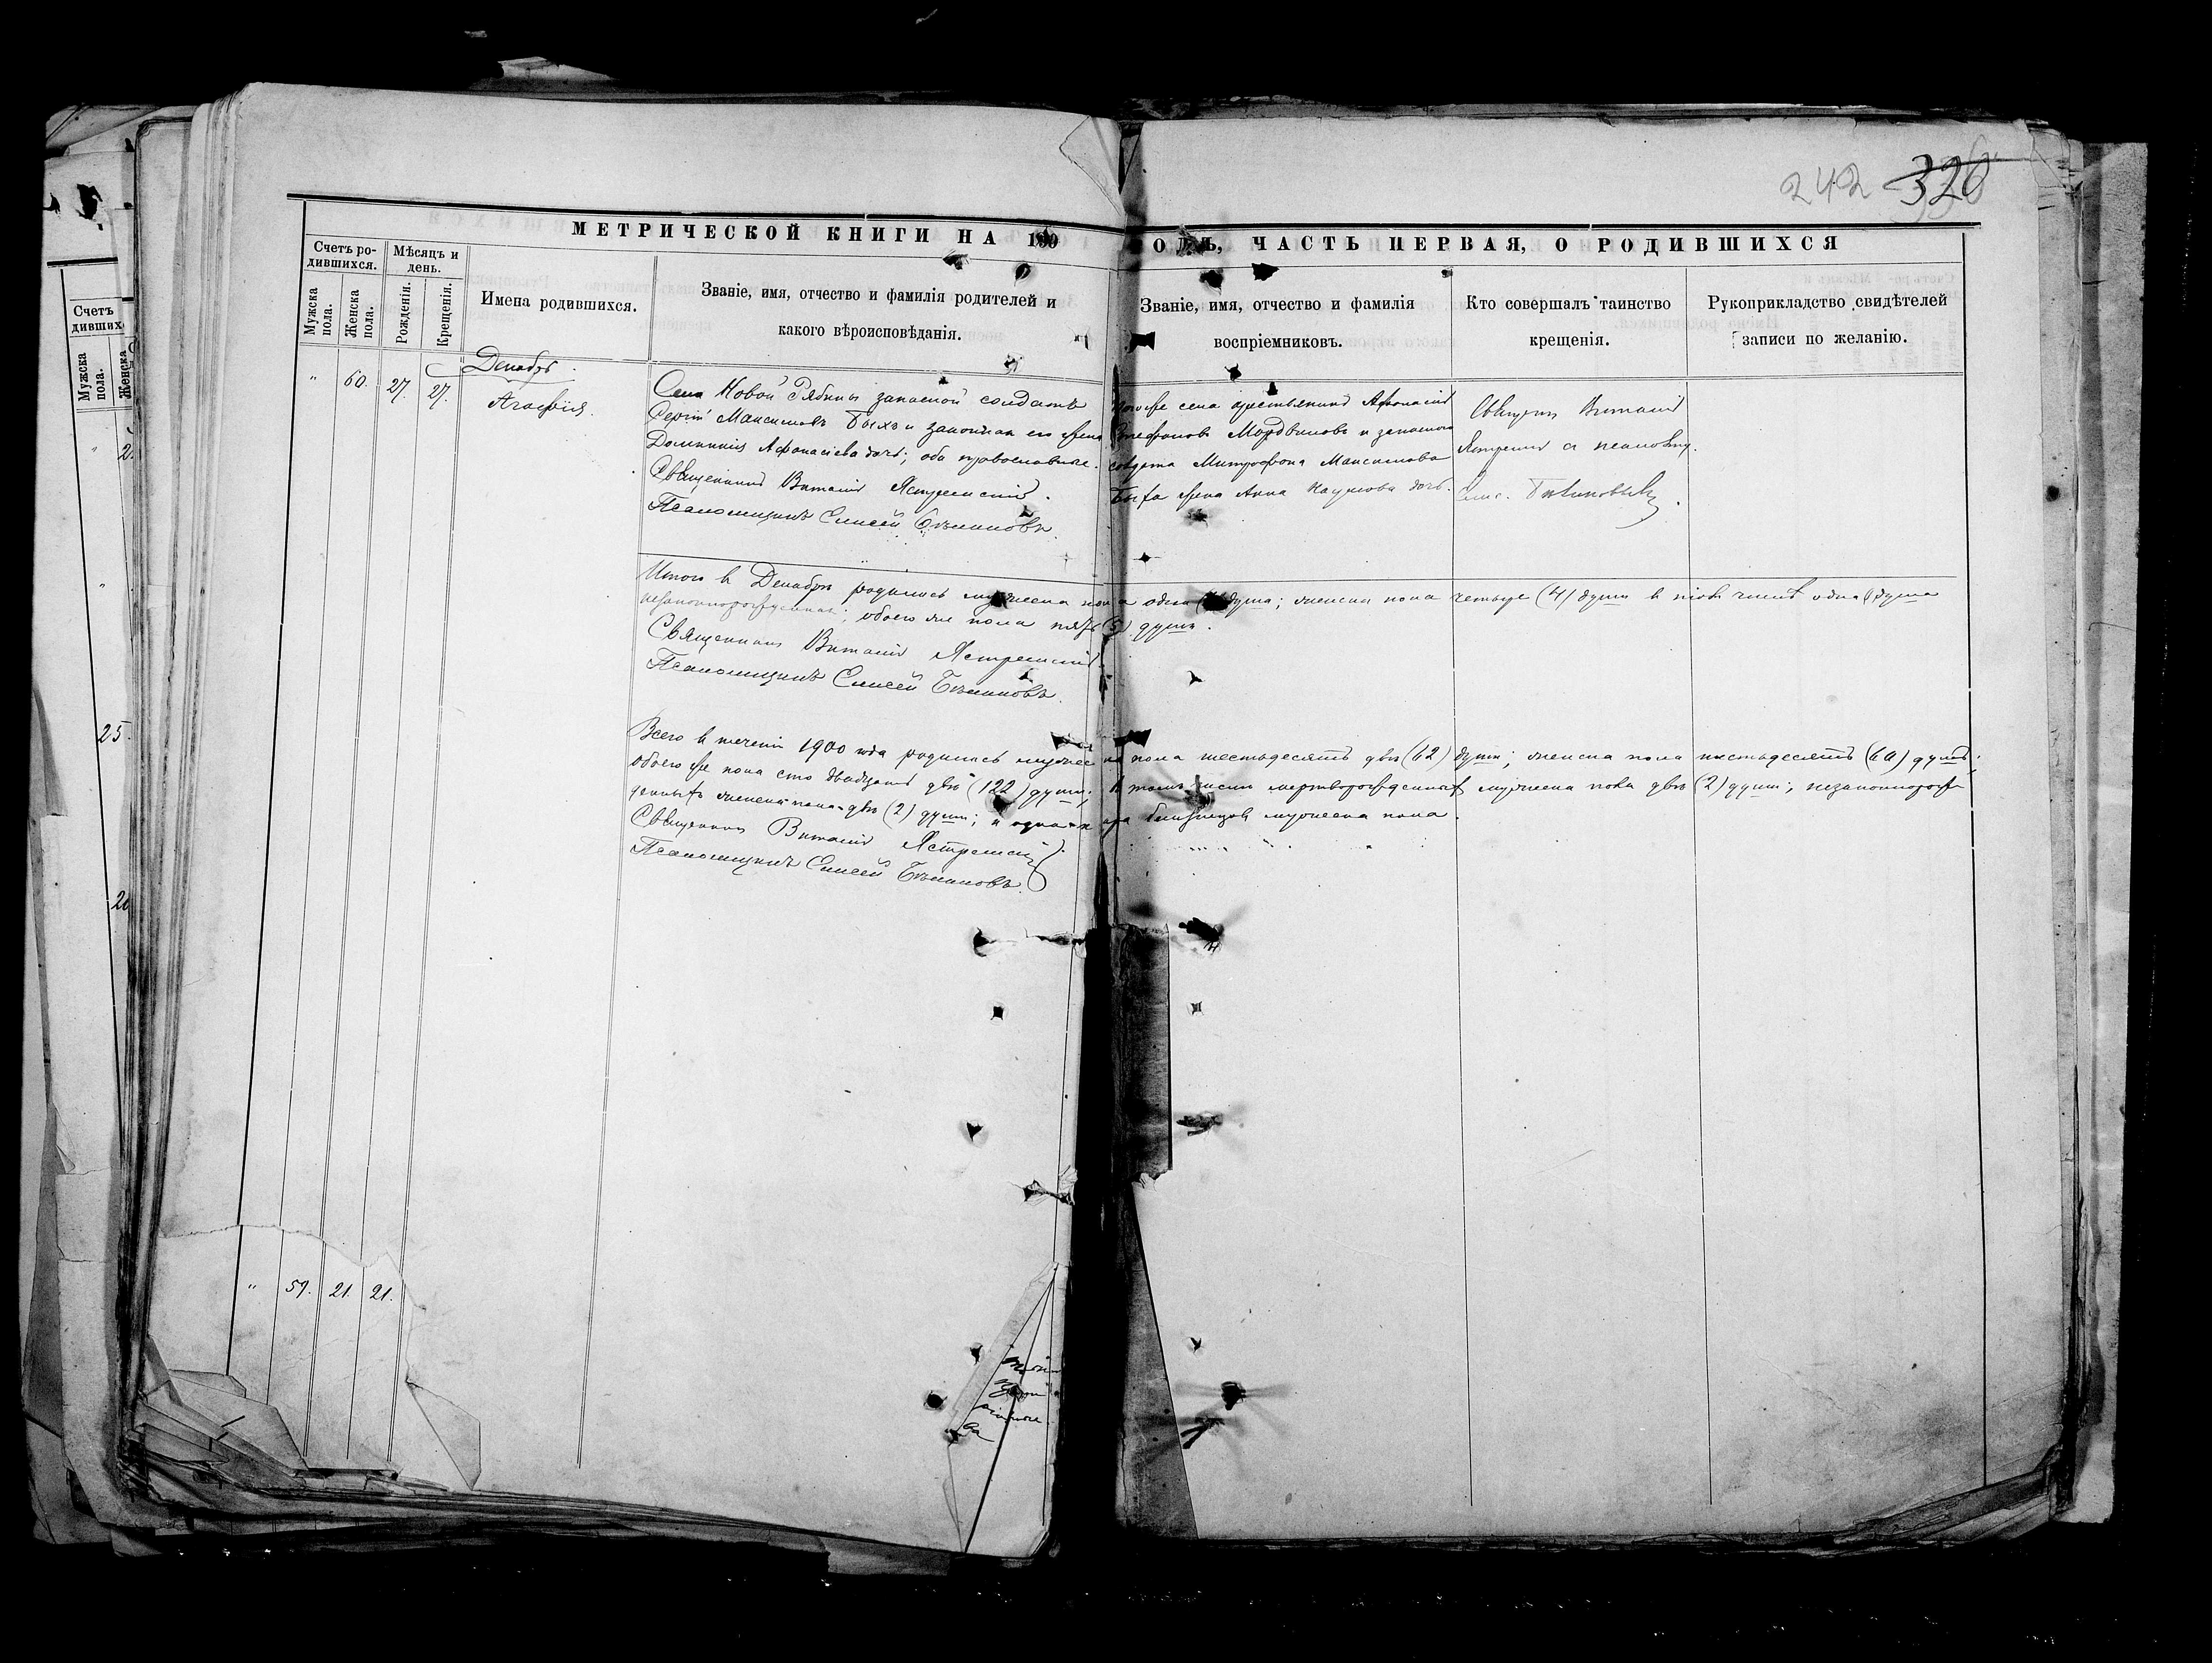 242 320
МЕТРИЧЕСКОЙ КНИГИ НА 190 ГОДЪ, ЧАСТЬ ПЕРВАЯ, О РОДИВШИХСЯ
Счетъ ро-
дившихся.
Мужска пола.
Женска пола.
Мѣсяцъ и
день.
Рожденія.
Крещенія.
Имена родившихся.
Званіе, имя, отчество и фамилія родителей и
какого вѣроисповѣданія.
Званіе, имя, отчество и фамилія
воспріемниковъ.
Кто совершалъ таинство
крещенія.
Рукоприкладство свидѣтелей
записи по желанію.
Декабрь.
" 60. 27. 27.
Агафія.
Села Новой Рябины запасной солдатъ
Сергій Максимовъ Быхъ и законная его жена
Домникія Афонасіева дочь; оба православные.
Священникъ Виталій Ястремскій.
Псаломщикъ Елисей
того же села крестьянинъ Афонасій
Стефановъ Мордвиновъ и запасного
солдата Митрофана Максимова
Быха жена Анна Наумова дочь.
Священ. Виталій
Ястремскій съ псаломщ.
Елис.
Итого въ Декабрѣ родилось мужеска пола одна (1) душа; женска пола четыре (4) души въ томъ числѣ одна (1) душа
незаконнорожденная; обоего же пола пять (5) душъ.
Священникъ Виталій Ястремскій
Псаломщикъ Елисей
Всего въ теченіи 1900 года родилось мужеска пола шестьдесятъ двѣ (62) души; женска пола шестьдесятъ (60) душъ;
обоего же пола сто двадцать двѣ (122) души; въ томъ числѣ мертворожденныхъ мужеска пола двѣ (2) души; незаконнорож-
денныхъ женска пола двѣ (2) души; и одна пара близнецовъ мужеска пола.
Священникъ Виталій Ястремскій.
Псаломщикъ Елисей
" 59. 21. 21.
Счетъ
дивших
Мужска пола.
Женска
25.